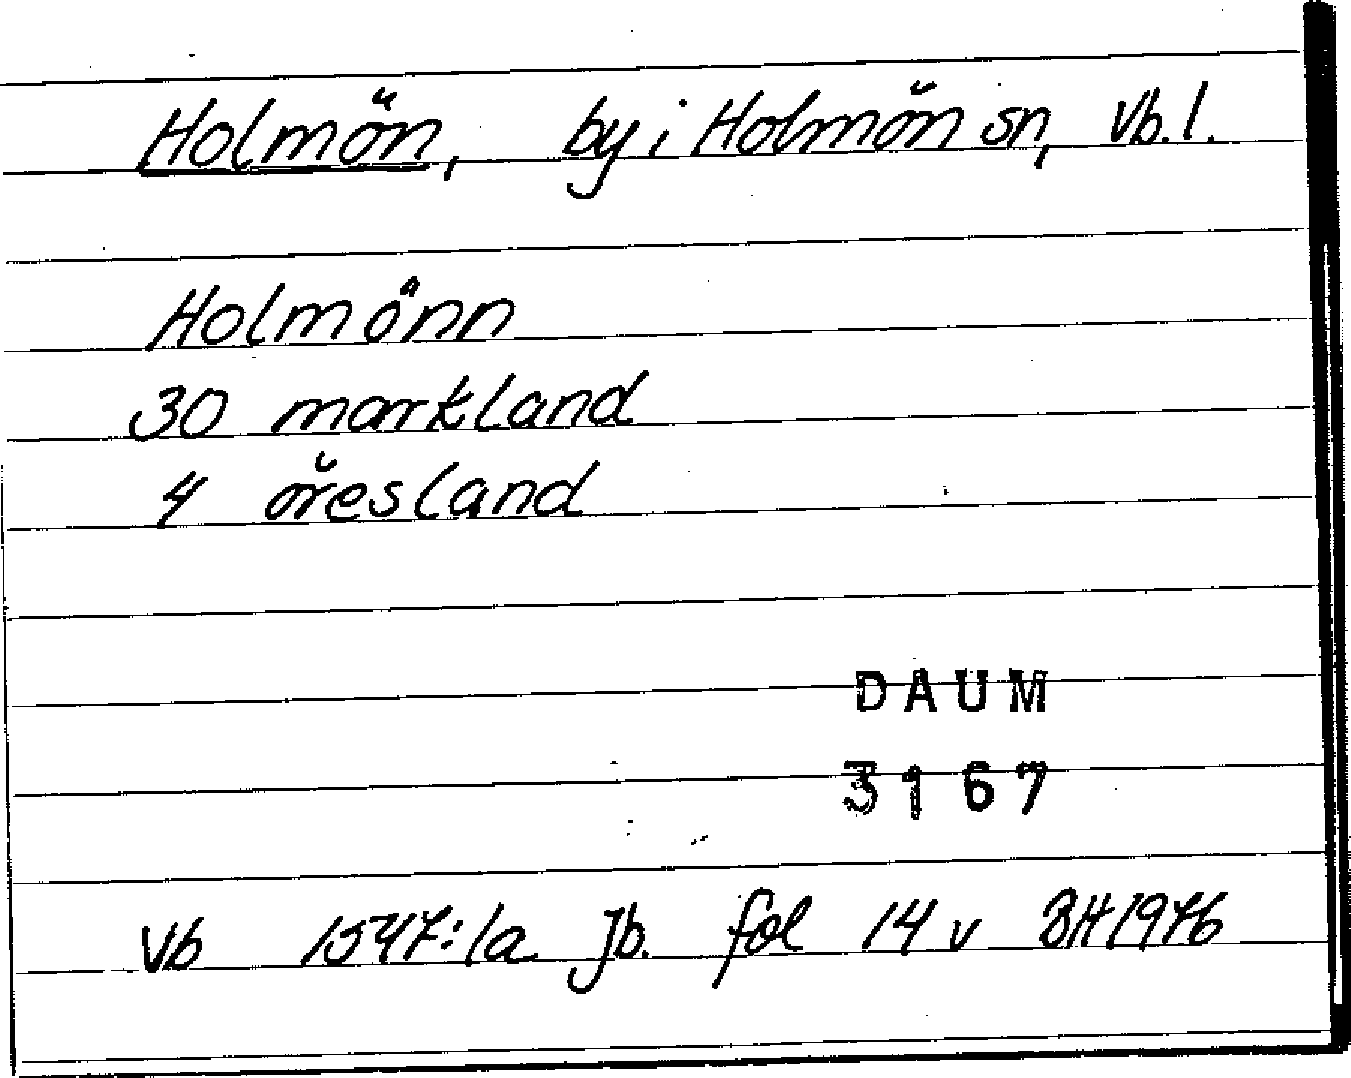 Holmön, by i Holmön sn, Vb. l.
Holmönn
30 markland
4 öresland
DAUM
3167
Vb 1547:1a Jb. fol 14 v BH 1976